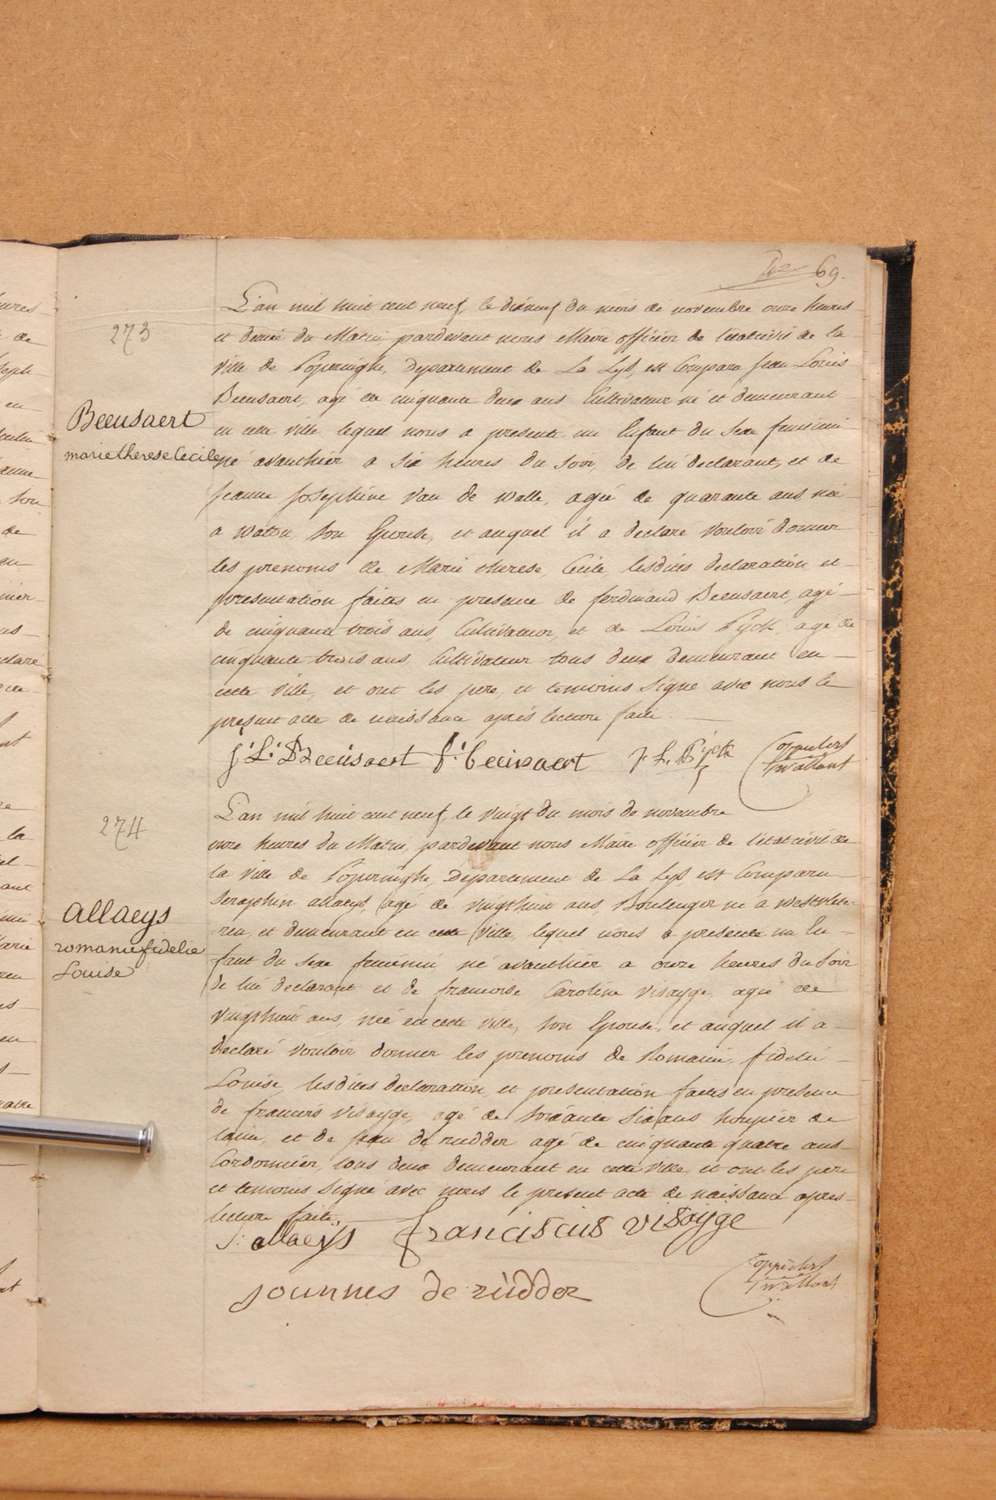 69.
273
Beeusaert
marie therese Cecile
L'an mil huit cent neuf, le dixneuf du mois de novembre onze heures
et demie du Matin pardevant nous Maire officier de l'état civil de la
ville de Poperinghe, departement de La Lys, est Comparu Jean Louis
Beeusaert, agé de cinquante deux ans Cultivateur né et demeurant
en cette ville lequel nous a presenté un Enfant du Sexe feminin
né avanthier a Six heures du Soir, de lui declarant, et de
Jeanne Josephine Van de Walle, agée de quarante ans née
a Watou Son Epouse, et auquel il a declaré vouloir donner
les prenoms de Marie therese, Cecile, lesdites declaration et
presentation faites en presence de ferdinand Beeusaert, agé
de cinquante trois ans, Cultivateur, et de Louis Pyck, agé de
cinquante trois ans, Cultivateur tous deux demeurant en
cette ville, et ont les pere, et temoins Signé avec nous le
present acte de naissance aprés lecture faite
J: L: Beeúsaert F: beeusaert J. L. Pyck
274
Allaeys
romanie fidelie
Louise
L'an mil huit cent neuf le vingt du mois de novembre
onze heures du Matin, pardevant nous Maire officier de l'état civil de
la ville de Poperinghe Departement de La Lys, est Comparu
Seraphin allaeys, agé de vingthuit ans, Boulenger né à Westvlete-
ren, et demeurant en cette ville, lequel nous a presenté un En-
fant du Sexe feminin né avanthier a onze heures du Soir
de lui declarant et de francoise Caroline Visayge, agée de
vingthuit ans, née en cette ville, Son Epouse, et auquel il a
declaré vouloir donner les prenoms de Romanie, fidelie
Louise, lesdites declaration, et presentation faites en presence
de francois Visayge, agé de Soixante Six ans houpier de
laine, et de Jean de rudder agé de cinquante quatre ans
Cordonnier, tous deux demeurant en cette ville et ont les pere
et temoins Signé avec nous le present acte de naissance apres
lecture faite
S: allaeÿs franciscus visayge
Joannes de rúdder